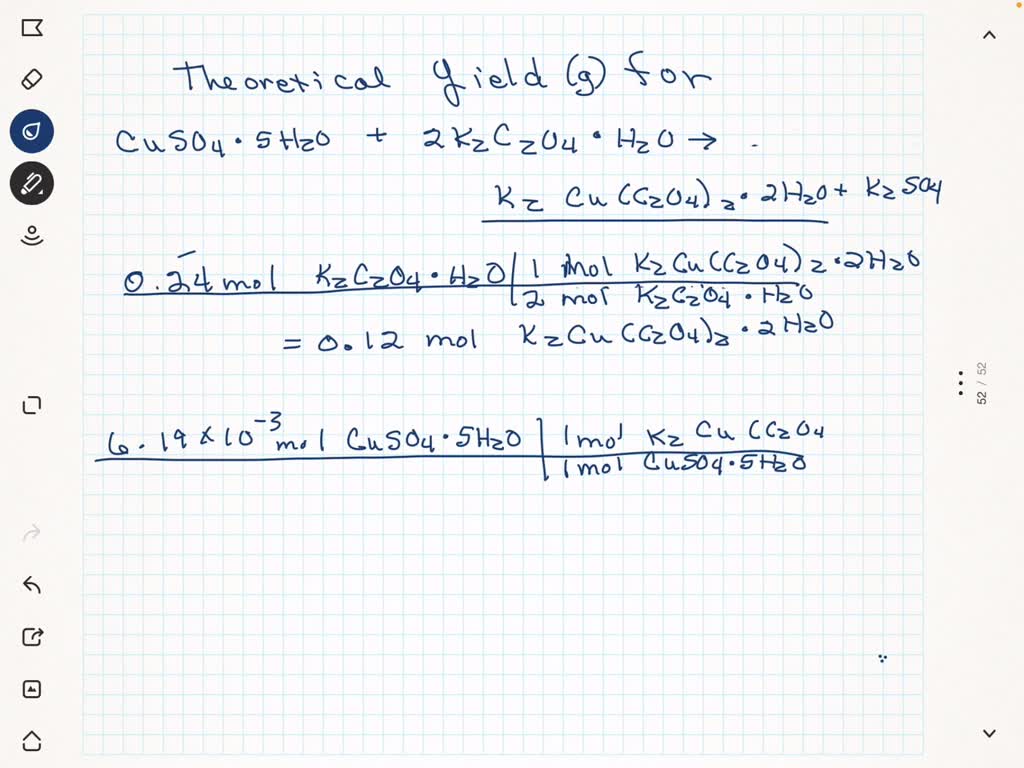 Theoretical yield (g) for
CuSO4 • 5H2O + 2K2C2O4 • H2O →
K2 Cu (C2O4)2 • 2H2O + K2SO4
0.24 mol K2C2O4 • H2O | 1 mol K2Cu(C2O4)2 • 2H2O
2 mol K2C2O4 • H2O
= 0.12 mol K2Cu(C2O4)2 • 2H2O
6.19 x 10^-3 mol CuSO4 • 5H2O | 1 mol K2 Cu (C2O4
1 mol CuSO4 • 5H2O
52 / 52